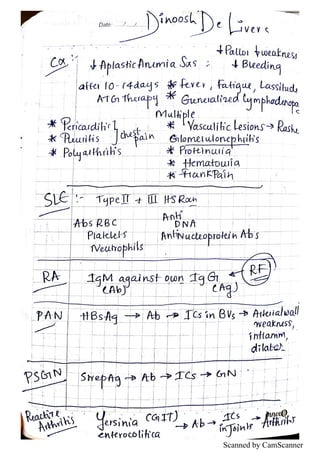 Date / /
Dinoosh De Livera
↓ Pallor ↓ weakness
Cox: ↓ Aplastic Anemia Sxs : ↓ Bleeding
after 10-14 days * Fever, Fatigue, Lassitude
ATG Therapy * Generalized Lymphadenopa
Multiple
* Pericarditis * Vasculitic Lesions → Rashe
* Pleuritis } chest pain Glomerulonephritis
* Polyarthritis * Proteinuria
* Hematouria
* Flank Pain
SLE :- Type II + III HS Rxn
Anti
Abs RBC DNA
Platelets Antinucleoprotein Abs
Neutrophils
RA IgM against own IgG ← RF
(Ab) (Ag)
PAN HBsAg → Ab → ICs in BVs → Arterial wall
weakness,
inflamm,
dilates
PSGN StrepAg → Ab → ICs → GN
Reactive Arthritis Yersinia (GIT) → Ab → ICs in joints → Acute Arthritis
enterocolitica
Scanned by CamScanner